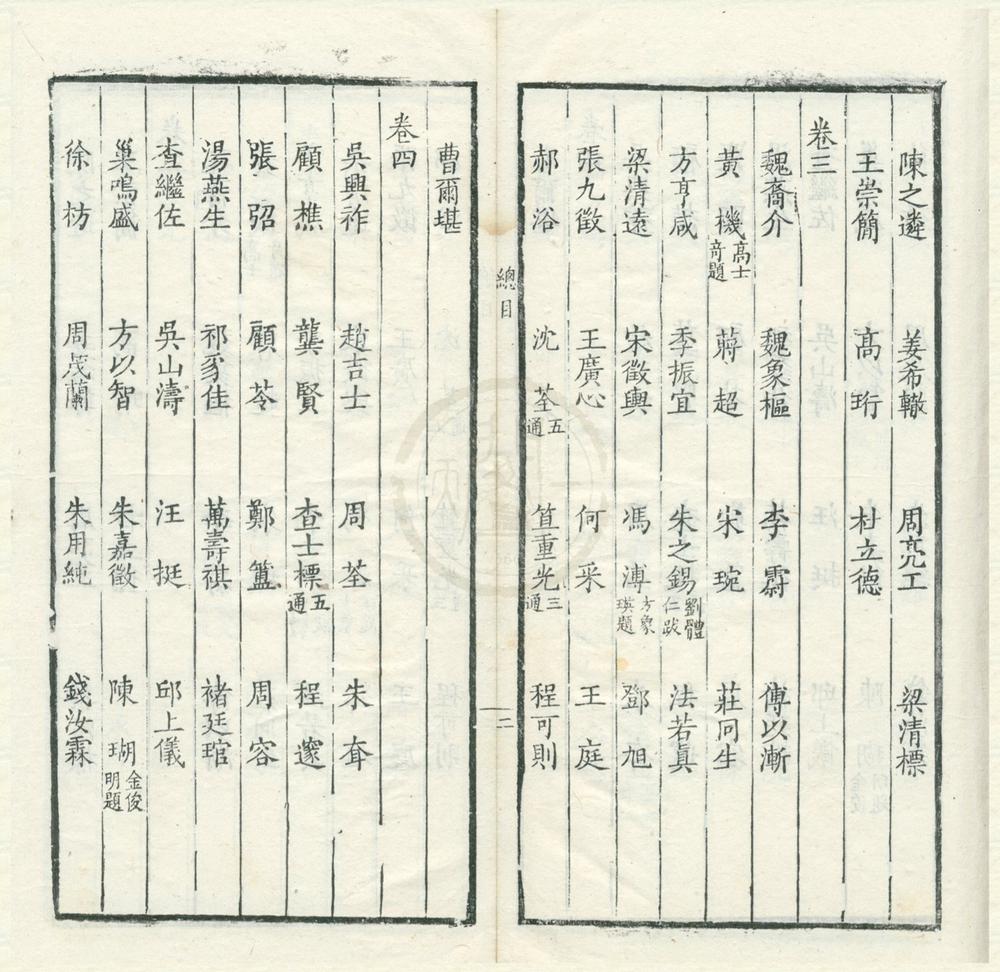 陳之遴 姜希轍 周亮工 梁清標
王崇簡 高珩 杜立德
卷三
魏裔介 魏象樞 李霨 傅以漸
黃機高士竒題 蔣超 宋琬 莊冋生
方亨咸 季振宜 朱之錫劉體仁跋 法若真
梁清遠 宋徵輿 馮溥方象瑛題 鄧旭
張九徵 王廣心 何采 王庭
郝浴 沈荃五通 笪重光三通 程可則
總目
二
曹爾堪
卷四
吳興祚 趙吉士 周荃 朱耷
顧樵 龔賢 查士標五通 程邃
張弨 顧苓 鄭簠 周容
湯燕生 祁豸佳 萬壽祺 褚廷琯
查繼佐 吳山濤 汪挺 邱上儀
巢鳴盛 方以智 朱嘉徵 陳瑚金俊明題
徐枋 周茂蘭 朱用純 錢汝霖